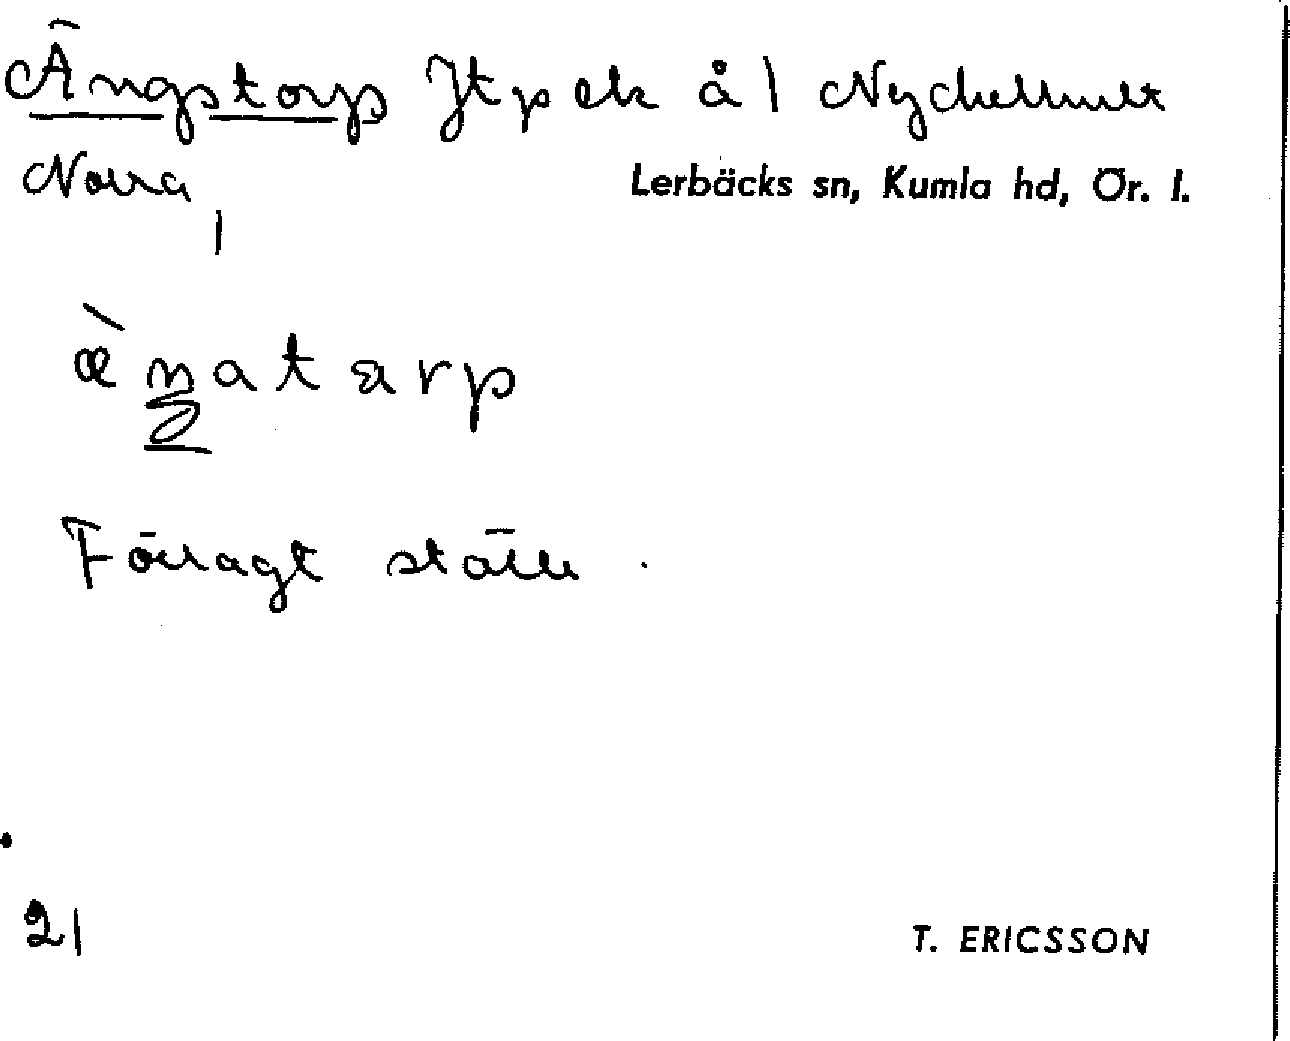 Ängstorp Jtp ek å 1 Nyckelhult
Norra,
Lerbäcks sn, Kumla hd, Ör. l.
Förlagt ställe.
21
T. ERICSSON